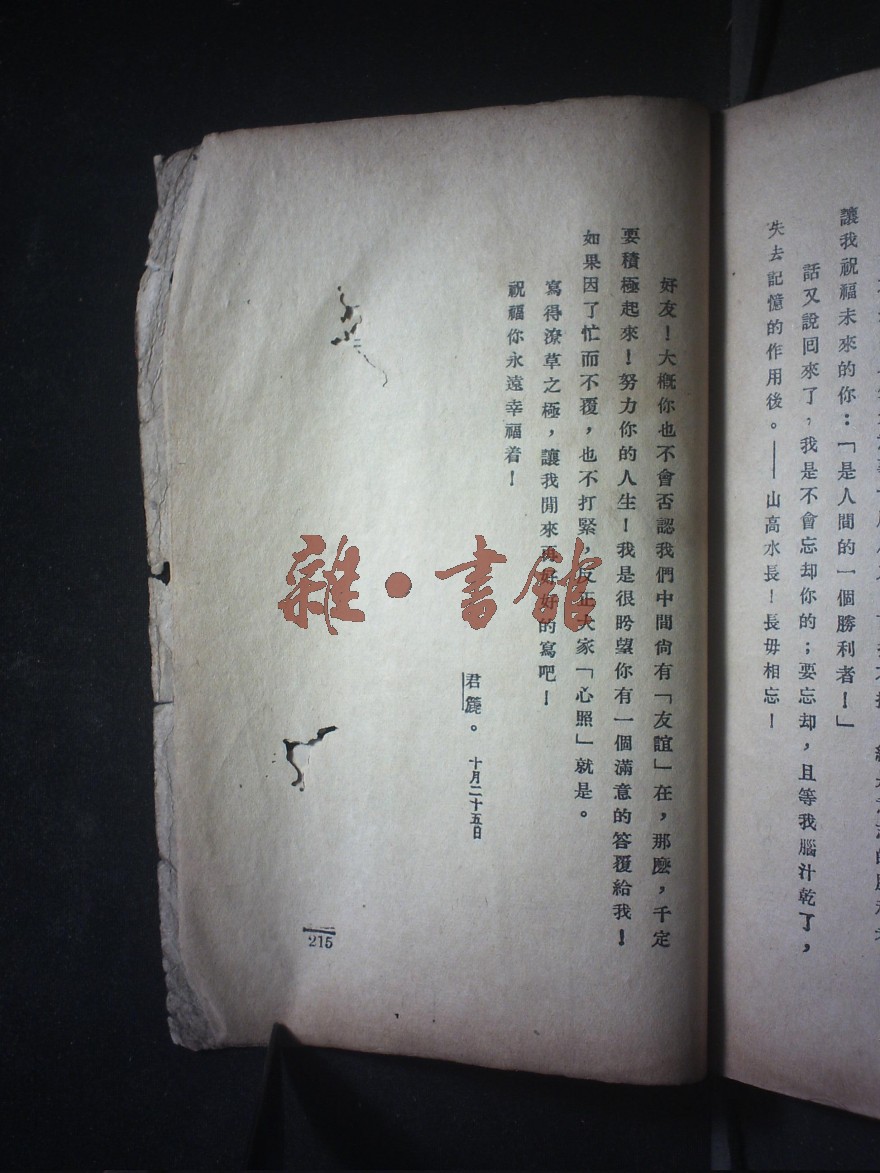 讓我祝福未來的你：「是人間的一個勝利者！」
話又說回來了，我是不會忘却你的；要忘却，且等我腦汁乾了，
失去記憶的作用後。——山高水長！長毋相忘！
好友！大概你也不會否認我們中間尙有「友誼」在，那麽，千定
要積極起來！努力你的人生！我是很盼望你有一個滿意的答覆給我！
如果因了忙而不覆，也不打緊，反正大家「心照」就是。
寫得潦草之極，讓我閒來再好好的寫吧！
祝福你永遠幸福着！
君箎。十月二十五日
215
雜·書館